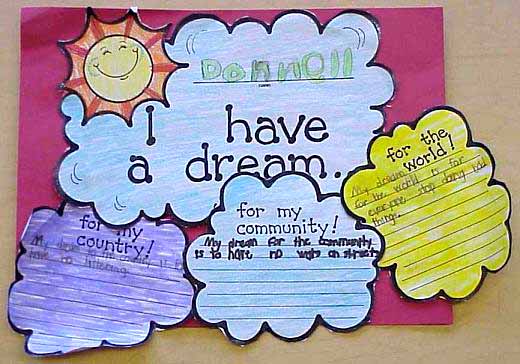 Donnell
I have
a dream.
for the
world!
My dream
for the world is for
everyone stop doing bad
things.
for my
country!
My
have no littering
for my
community!
My dream for the community
is to have no wars on streets